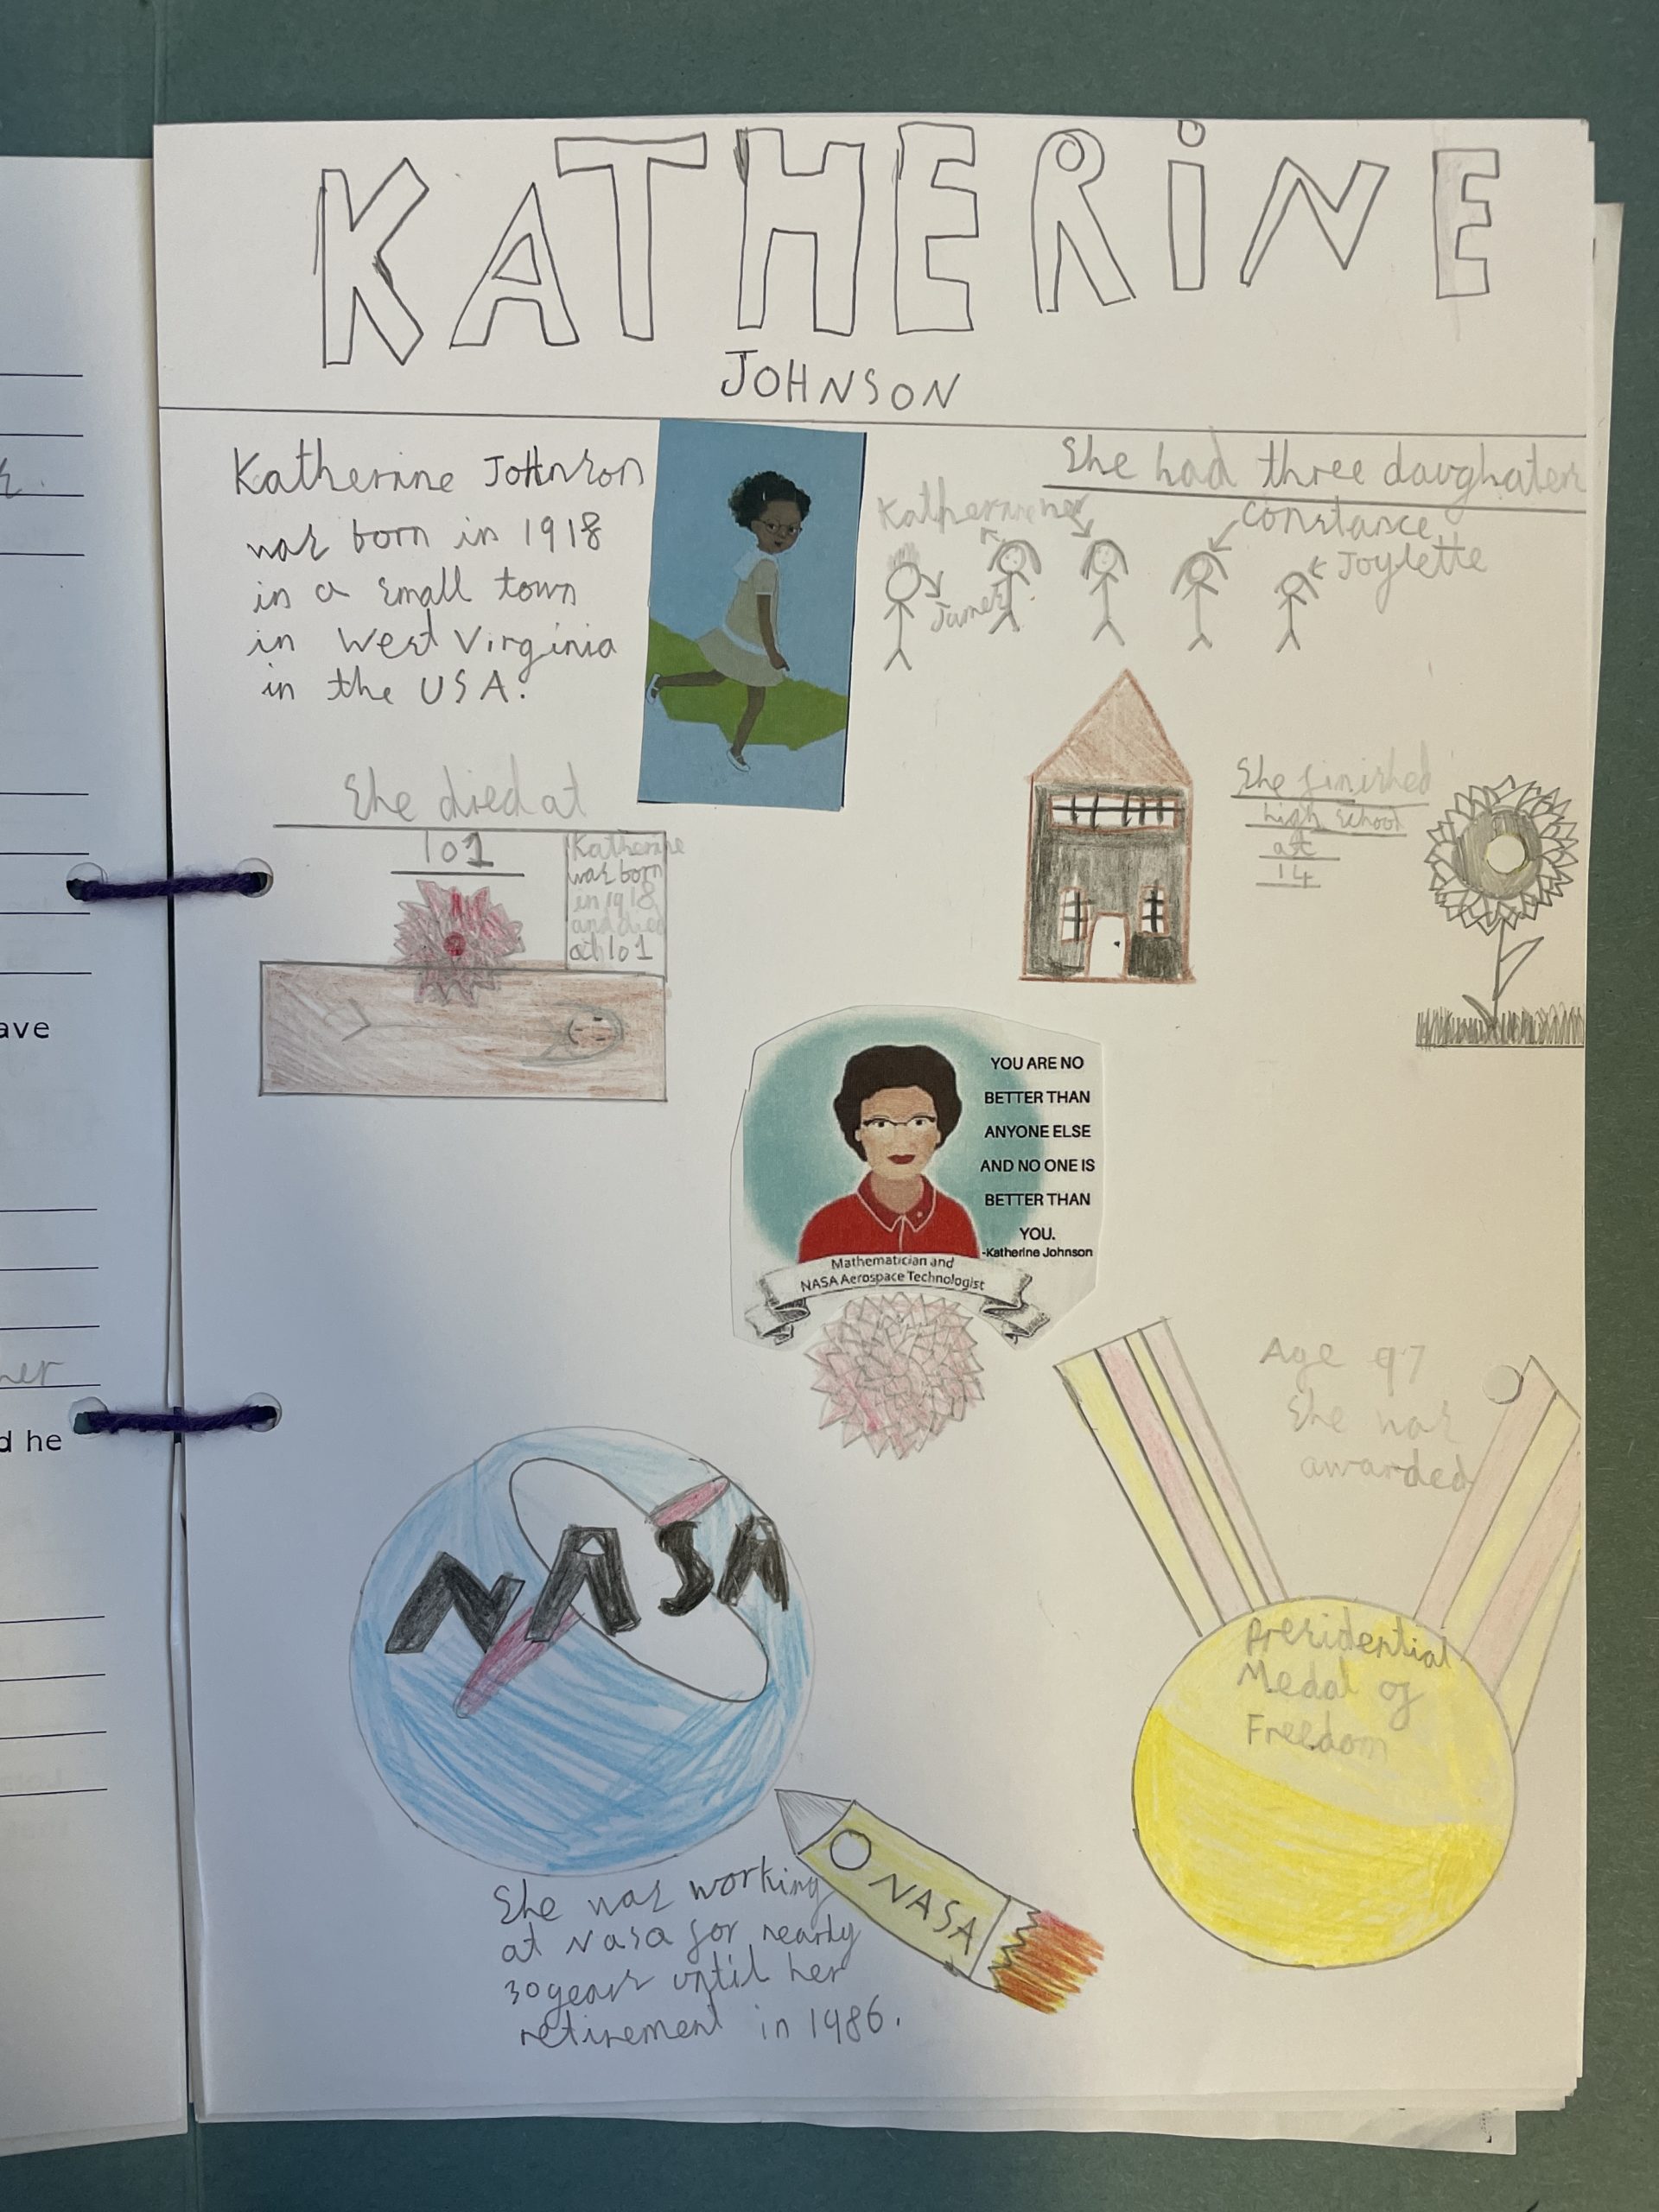 KATHERINE
JOHNSON
Katherine Johnson
was born in 1918
in a small town
in West Virginia
in the USA.
She had three daughater
Katherine
Constance
Joylette
James
She died at
101
Katherine
was born
in 1918
and died
at 101
She finished
high school
at
14
YOU ARE NO
BETTER THAN
ANYONE ELSE
AND NO ONE IS
BETTER THAN
YOU.
-Katherine Johnson
Mathematician and
NASA Aerospace Technologist
Age 97
She was
awarded
Presidential
Medal of
Freedom
NASA
NASA
She was working
at Nasa for nearly
30 years until her
retirement in 1986.
ave
her
d he